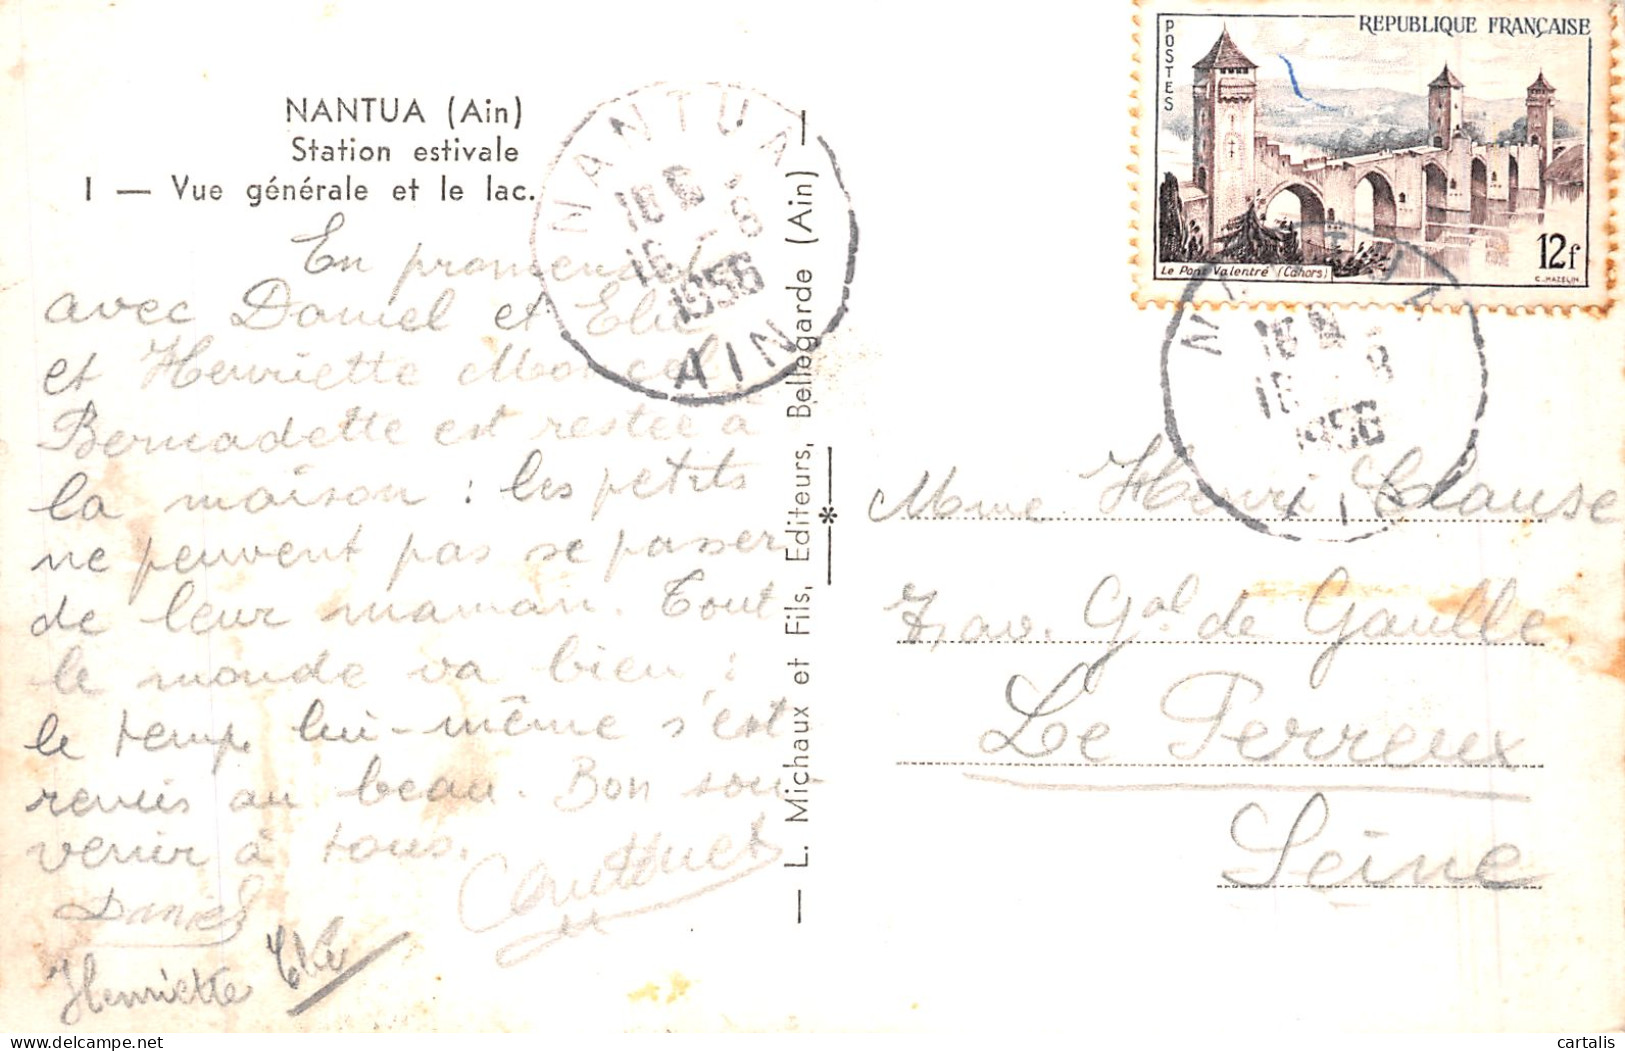 NANTUA (Ain)
Station estivale
I — Vue générale et le lac.
En promenade
avec Daniel et Elie
et Henriette
Bernadette est restée à
la maison : les petits
ne peuvent pas se passer
de leur maman. Tout
le monde va bien ;
le temps lui-même s'est
remis au beau. Bon sou-
venir à tous.
Daniel
Henriette Elie
NANTUA
1956
AIN
— L. Michaux et Fils, Editeurs, Bellegarde (Ain) —
*
POSTES
REPUBLIQUE FRANÇAISE
Le Pont Valentré (Cahors)
12f
C. HAZELIN
1956
Mme Henri Clause
7, av. Gal de Gaulle
Le Perreux
Seine
cartalis